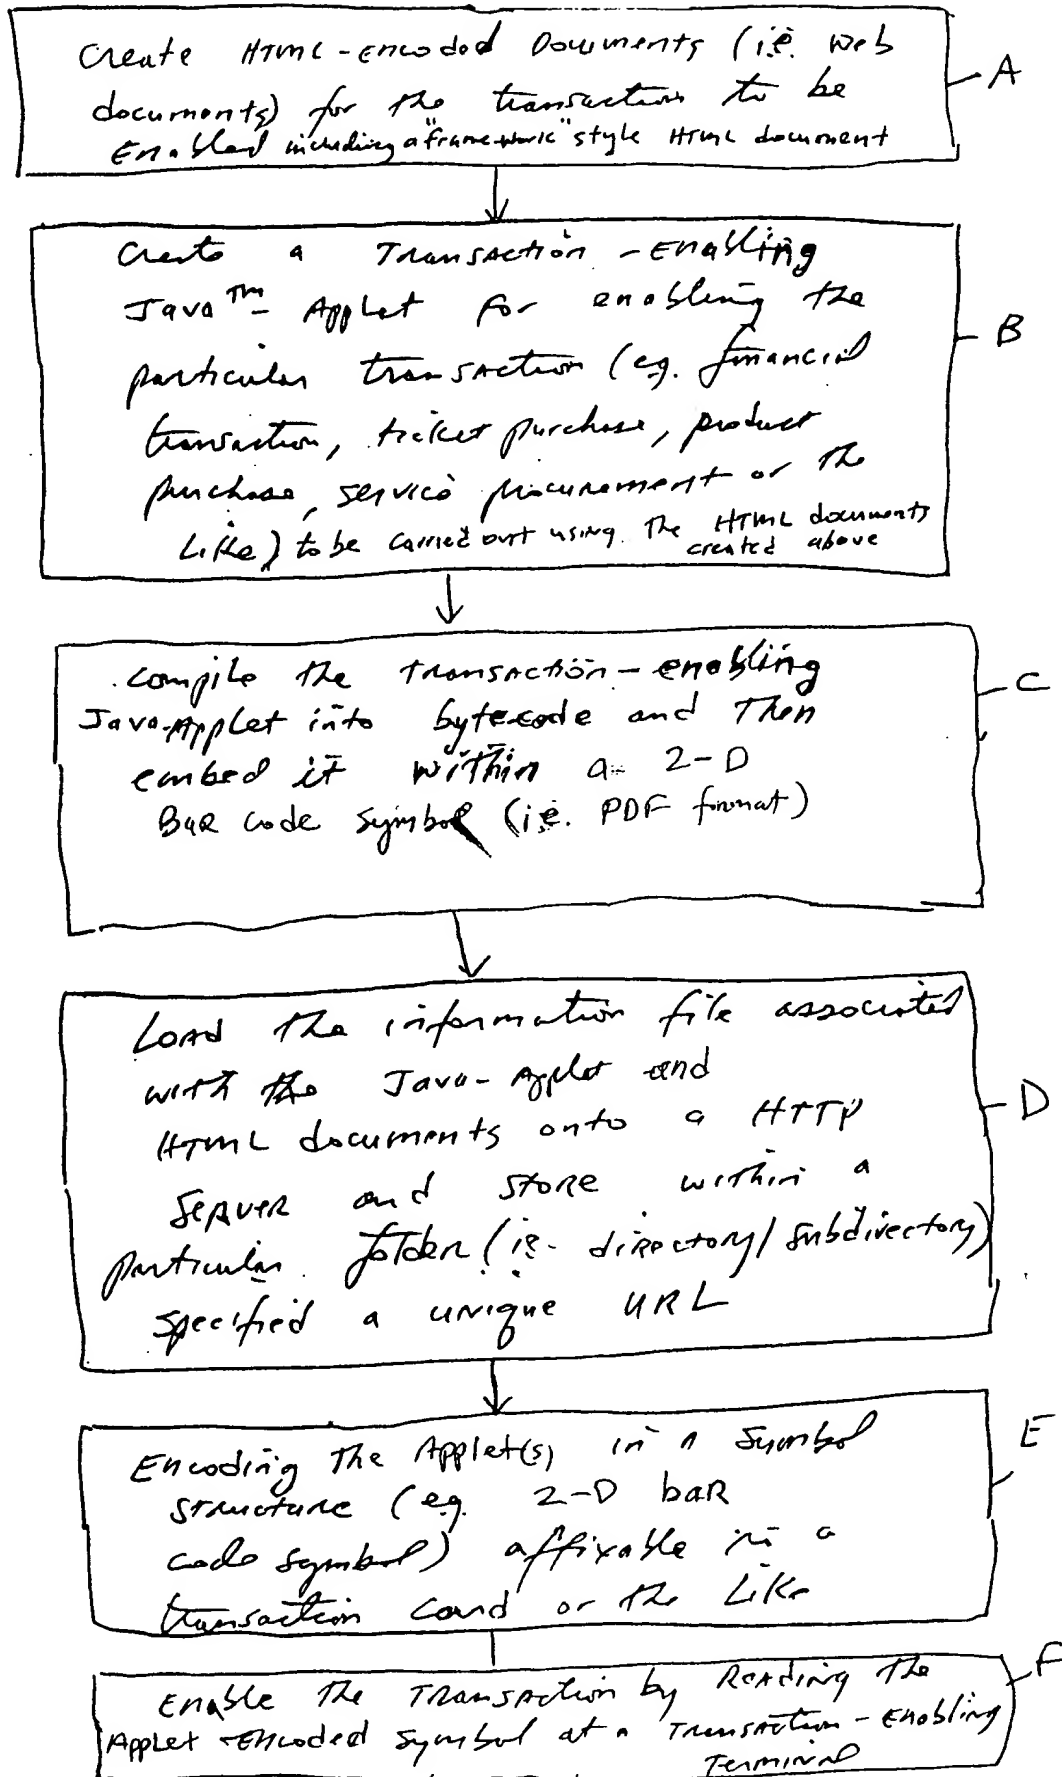 Create HTML-encoded Documents (i.e. Web
documents) for the transaction to be
Enabled including a "framework" style HTML document
A
Create a Transaction-Enabling
Java™-Applet for enabling the
particular transaction (e.g. financial
transaction, ticket purchase, product
purchase, service procurement or the
Like) to be carried out using the HTML documents
created above
B
Compile the transaction-enabling
Java-Applet into bytecode and Then
embed it within a 2-D
Bar code symbol (i.e. PDF format)
C
Load the information file associated
with the Java-Applet and
HTML documents onto a HTTP
Server and store within a
particular folder (ie. directory/subdirectory)
specified a unique URL
D
Encoding the Applet(s) in a Symbol
structure (e.g. 2-D bar
code symbol) affixable in a
transaction card or the Like
E
Enable the Transaction by Reading the
Applet-Encoded Symbol at a Transaction-Enabling
Terminal
F